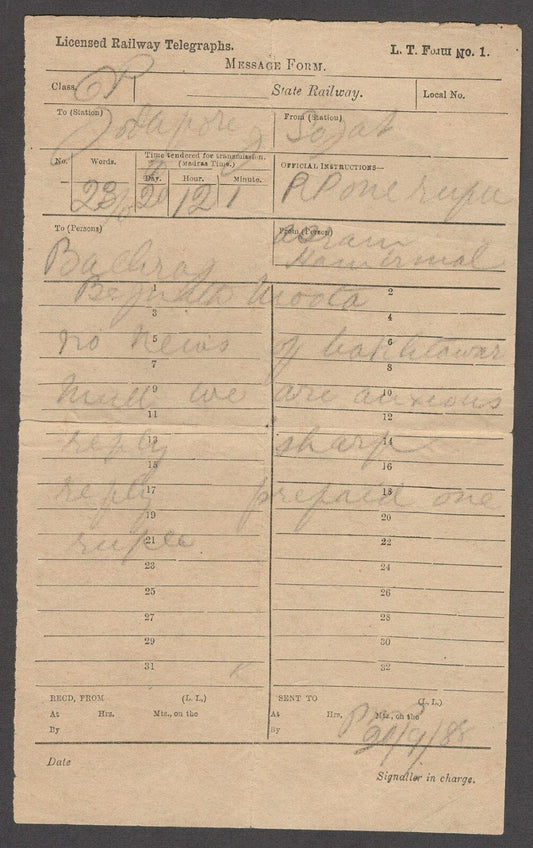 Licensed Railway Telegraphs.
L. T. Form No. 1.
MESSAGE FORM.
Class. P
State Railway.
Local No.
To (Station)
From (Station)
Sojat
No.
Words.
Time tendered for transmission.
(Madras Time.)
Day.
Hour.
Minute.
OFFICIAL INSTRUCTIONS—
23
20
12
1
RP one rupee
To (Persons)
From (Person)
Bachraj
Hamirmal
1
2
Bejnath Moota
3
4
5
6
no news of bakhtawar
7
8
9
10
mull we are anxious
11
12
13
14
reply sharp
15
16
17
18
reply prepaid one
19
20
21
22
rupee
23
24
25
26
27
28
29
30
31
32
RECD, FROM (L. L.)
SENT TO (L. L.)
At Hrs. Mts., on the
At Hrs, Mts., on the
By
By
20/9/88
Date
Signaller in charge.